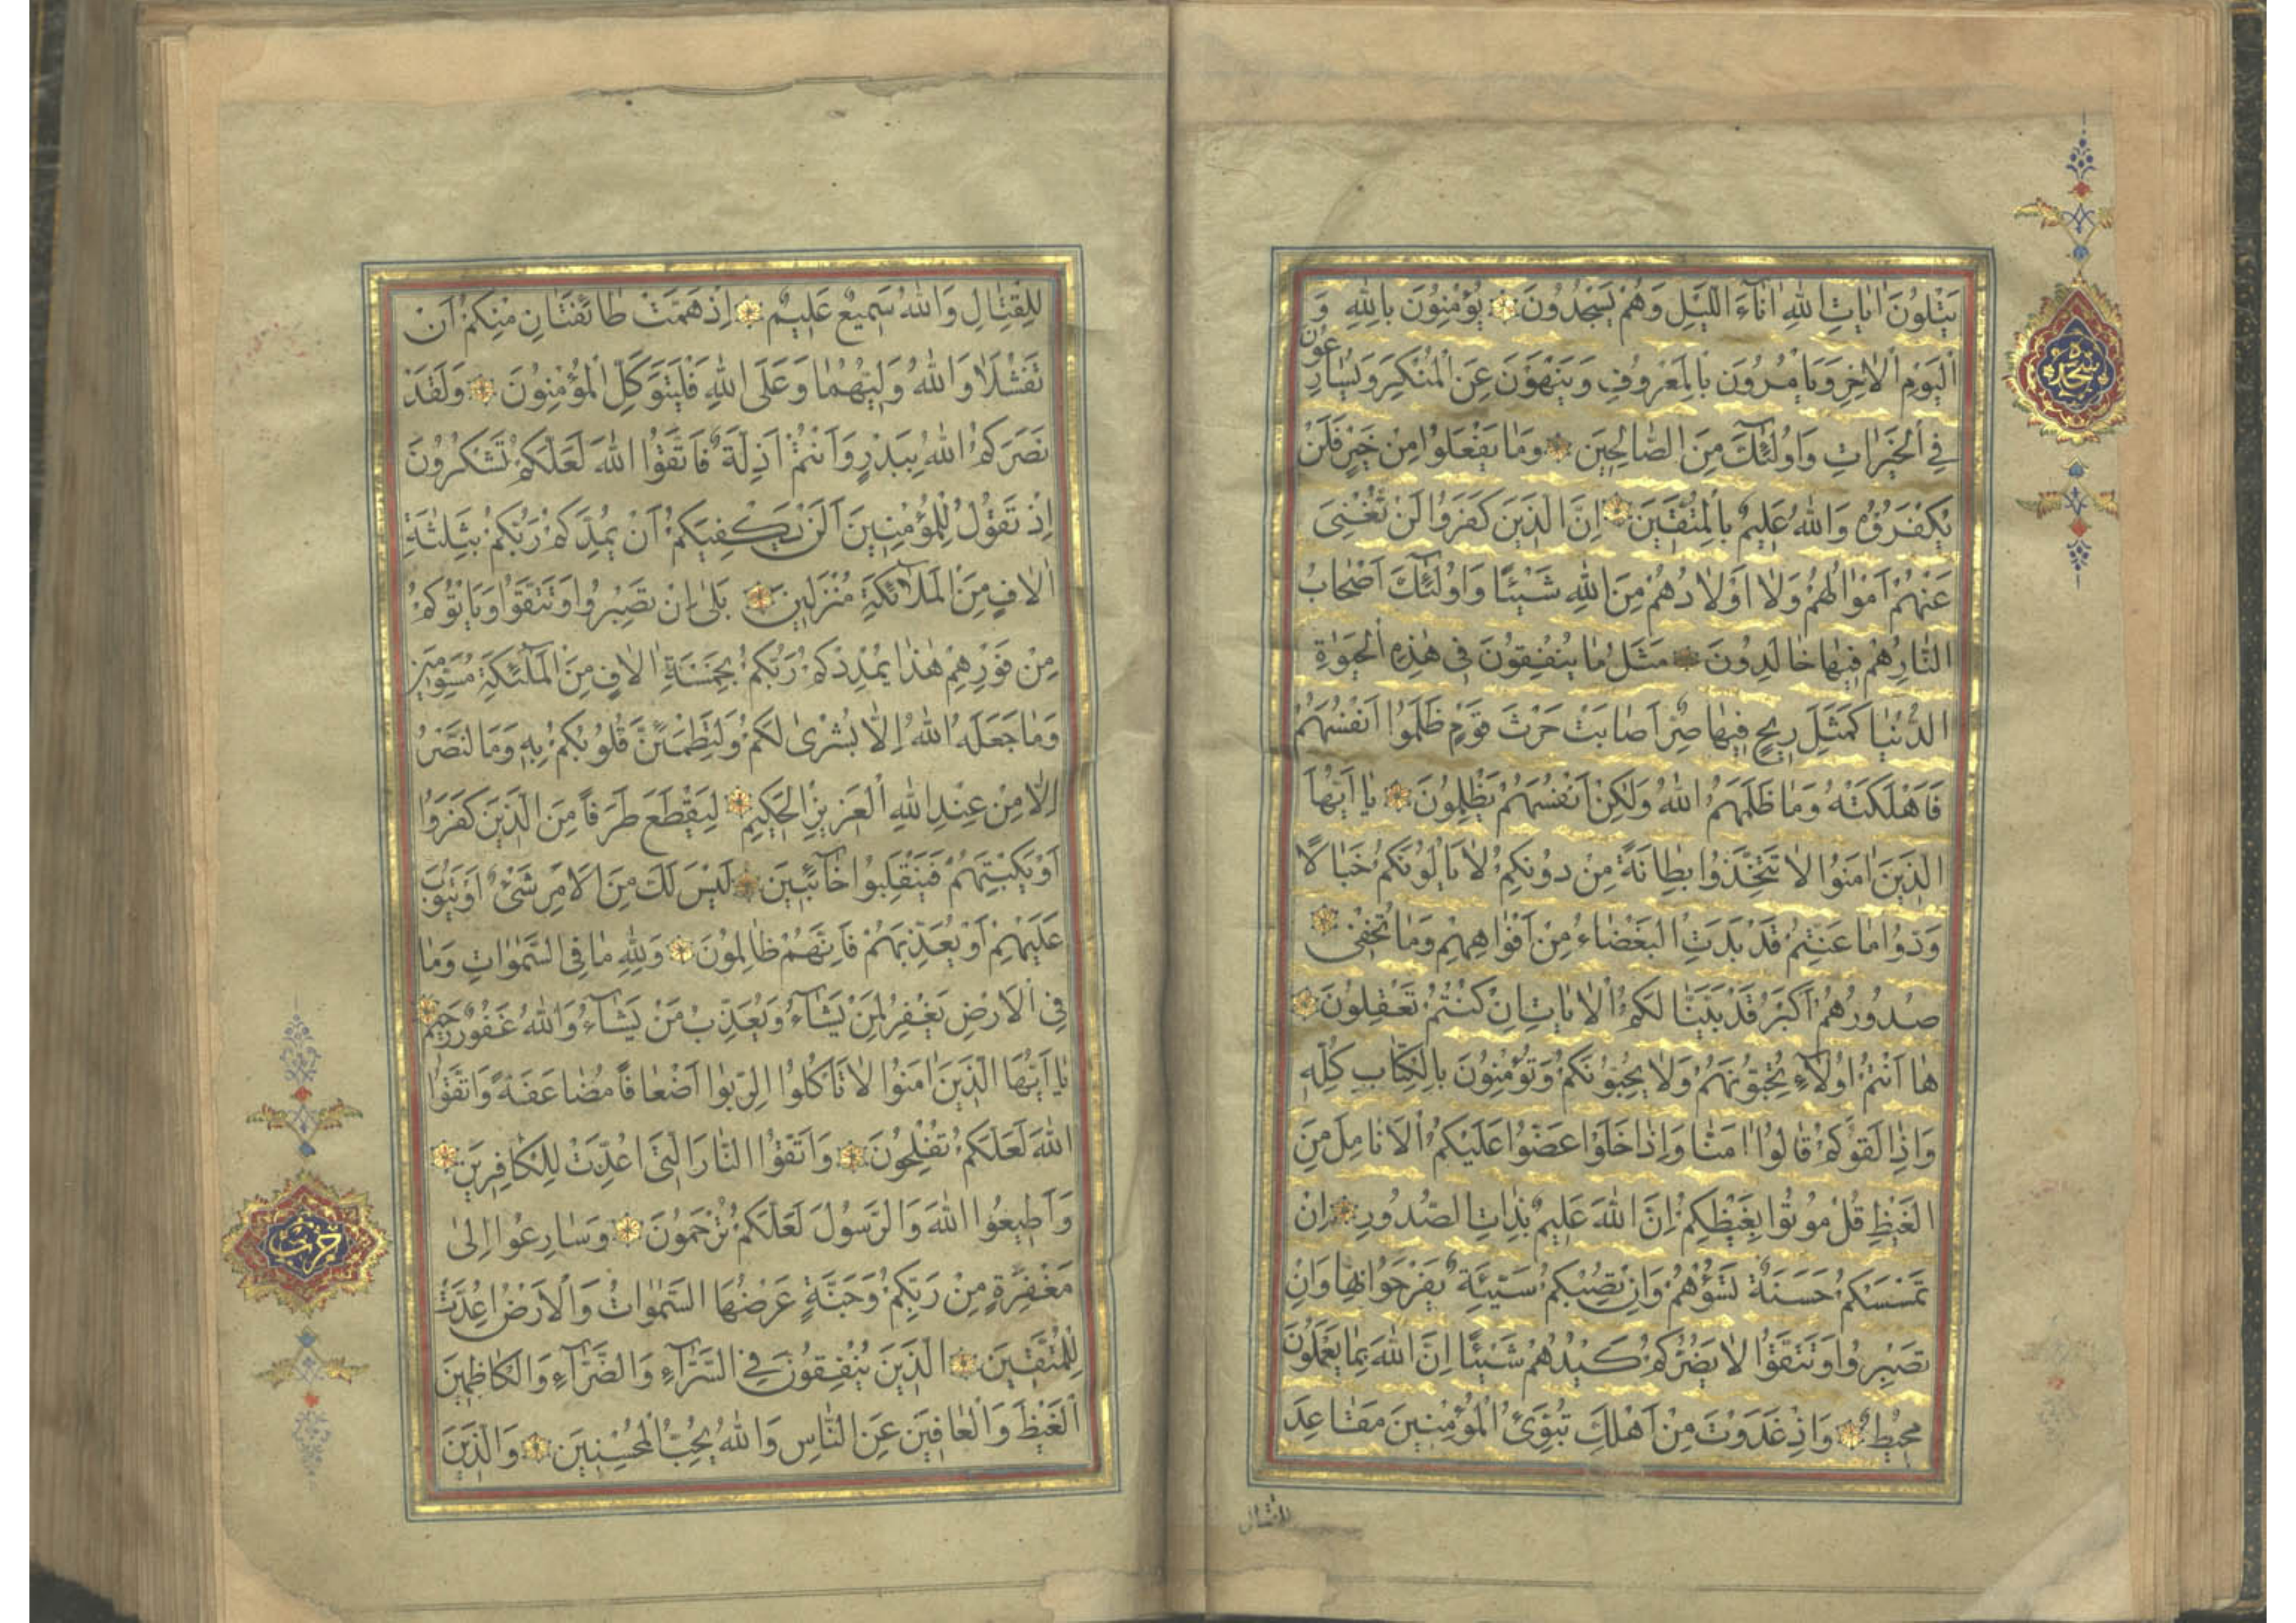 يَتْلُونَ اٰيَاتِ اللّٰهِ اٰنَآءَ الَّيْلِ وَهُمْ يَسْجُدُونَ يُؤْمِنُونَ بِاللّٰهِ وَ
الْيَوْمِ الْاٰخِرِ وَيَأْمُرُونَ بِالْمَعْرُوفِ وَيَنْهَوْنَ عَنِ الْمُنْكَرِ وَيُسَارِعُونَ
فِي الْخَيْرَاتِ وَاُولٰٓئِكَ مِنَ الصَّالِحِينَ وَمَا يَفْعَلُوا مِنْ خَيْرٍ فَلَنْ
يُكْفَرُوهُ وَاللّٰهُ عَلِيمٌ بِالْمُتَّقِينَ اِنَّ الَّذِينَ كَفَرُوا لَنْ تُغْنِيَ
عَنْهُمْ اَمْوَالُهُمْ وَلَا اَوْلَادُهُمْ مِنَ اللّٰهِ شَيْئًا وَاُولٰٓئِكَ اَصْحَابُ
النَّارِ هُمْ فِيهَا خَالِدُونَ مَثَلُ مَا يُنْفِقُونَ فِي هٰذِهِ الْحَيٰوةِ
الدُّنْيَا كَمَثَلِ رِيحٍ فِيهَا صِرٌّ اَصَابَتْ حَرْثَ قَوْمٍ ظَلَمُوا اَنْفُسَهُمْ
فَاَهْلَكَتْهُ وَمَا ظَلَمَهُمُ اللّٰهُ وَلٰكِنْ اَنْفُسَهُمْ يَظْلِمُونَ يَا اَيُّهَا
الَّذِينَ اٰمَنُوا لَا تَتَّخِذُوا بِطَانَةً مِنْ دُونِكُمْ لَا يَأْلُونَكُمْ خَبَالًا
وَدُّوا مَا عَنِتُّمْ قَدْ بَدَتِ الْبَغْضَاءُ مِنْ اَفْوَاهِهِمْ وَمَا تُخْفِي
صُدُورُهُمْ اَكْبَرُ قَدْ بَيَّنَّا لَكُمُ الْاٰيَاتِ اِنْ كُنْتُمْ تَعْقِلُونَ
هَا اَنْتُمْ اُولَآءِ تُحِبُّونَهُمْ وَلَا يُحِبُّونَكُمْ وَتُؤْمِنُونَ بِالْكِتَابِ كُلِّهِ
وَاِذَا لَقُوكُمْ قَالُوا اٰمَنَّا وَاِذَا خَلَوْا عَضُّوا عَلَيْكُمُ الْاَنَامِلَ مِنَ
الْغَيْظِ قُلْ مُوتُوا بِغَيْظِكُمْ اِنَّ اللّٰهَ عَلِيمٌ بِذَاتِ الصُّدُورِ اِنْ
تَمْسَسْكُمْ حَسَنَةٌ تَسُؤْهُمْ وَاِنْ تُصِبْكُمْ سَيِّئَةٌ يَفْرَحُوا بِهَا وَاِنْ
تَصْبِرُوا وَتَتَّقُوا لَا يَضُرُّكُمْ كَيْدُهُمْ شَيْئًا اِنَّ اللّٰهَ بِمَا يَعْمَلُونَ
مُحِيطٌ وَاِذْ غَدَوْتَ مِنْ اَهْلِكَ تُبَوِّئُ الْمُؤْمِنِينَ مَقَاعِدَ
للقتال
سجده
لِلْقِتَالِ وَاللّٰهُ سَمِيعٌ عَلِيمٌ اِذْ هَمَّتْ طَائِفَتَانِ مِنْكُمْ اَنْ
تَفْشَلَا وَاللّٰهُ وَلِيُّهُمَا وَعَلَى اللّٰهِ فَلْيَتَوَكَّلِ الْمُؤْمِنُونَ وَلَقَدْ
نَصَرَكُمُ اللّٰهُ بِبَدْرٍ وَاَنْتُمْ اَذِلَّةٌ فَاتَّقُوا اللّٰهَ لَعَلَّكُمْ تَشْكُرُونَ
اِذْ تَقُولُ لِلْمُؤْمِنِينَ اَلَنْ يَكْفِيَكُمْ اَنْ يُمِدَّكُمْ رَبُّكُمْ بِثَلٰثَةِ
اٰلَافٍ مِنَ الْمَلَآئِكَةِ مُنْزَلِينَ بَلٰى اِنْ تَصْبِرُوا وَتَتَّقُوا وَيَأْتُوكُمْ
مِنْ فَوْرِهِمْ هٰذَا يُمْدِدْكُمْ رَبُّكُمْ بِخَمْسَةِ اٰلَافٍ مِنَ الْمَلٰٓئِكَةِ مُسَوِّمِينَ
وَمَا جَعَلَهُ اللّٰهُ اِلَّا بُشْرٰى لَكُمْ وَلِتَطْمَئِنَّ قُلُوبُكُمْ بِهِ وَمَا النَّصْرُ
اِلَّا مِنْ عِنْدِ اللّٰهِ الْعَزِيزِ الْحَكِيمِ لِيَقْطَعَ طَرَفًا مِنَ الَّذِينَ كَفَرُوا
اَوْ يَكْبِتَهُمْ فَيَنْقَلِبُوا خَآئِبِينَ لَيْسَ لَكَ مِنَ الْاَمْرِ شَيْءٌ اَوْ يَتُوبَ
عَلَيْهِمْ اَوْ يُعَذِّبَهُمْ فَاِنَّهُمْ ظَالِمُونَ وَلِلّٰهِ مَا فِي السَّمٰوَاتِ وَمَا
فِي الْاَرْضِ يَغْفِرُ لِمَنْ يَشَآءُ وَيُعَذِّبُ مَنْ يَشَآءُ وَاللّٰهُ غَفُورٌ رَحِيمٌ
يَا اَيُّهَا الَّذِينَ اٰمَنُوا لَا تَأْكُلُوا الرِّبٰوا اَضْعَافًا مُضَاعَفَةً وَاتَّقُوا
اللّٰهَ لَعَلَّكُمْ تُفْلِحُونَ وَاتَّقُوا النَّارَ الَّتِي اُعِدَّتْ لِلْكَافِرِينَ
وَاَطِيعُوا اللّٰهَ وَالرَّسُولَ لَعَلَّكُمْ تُرْحَمُونَ وَسَارِعُوا اِلٰى
مَغْفِرَةٍ مِنْ رَبِّكُمْ وَجَنَّةٍ عَرْضُهَا السَّمٰوَاتُ وَالْاَرْضُ اُعِدَّتْ
لِلْمُتَّقِينَ الَّذِينَ يُنْفِقُونَ فِي السَّرَّآءِ وَالضَّرَّآءِ وَالْكَاظِمِينَ
الْغَيْظَ وَالْعَافِينَ عَنِ النَّاسِ وَاللّٰهُ يُحِبُّ الْمُحْسِنِينَ وَالَّذِينَ
حزب